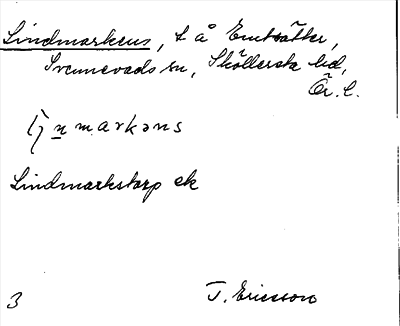 Lindmarkens, t å Emtsätter,
Svennevads sn, Sköllersta hd,
Ör. l.
markəns
Lindmarkstorp ek
3 T. Ericsson